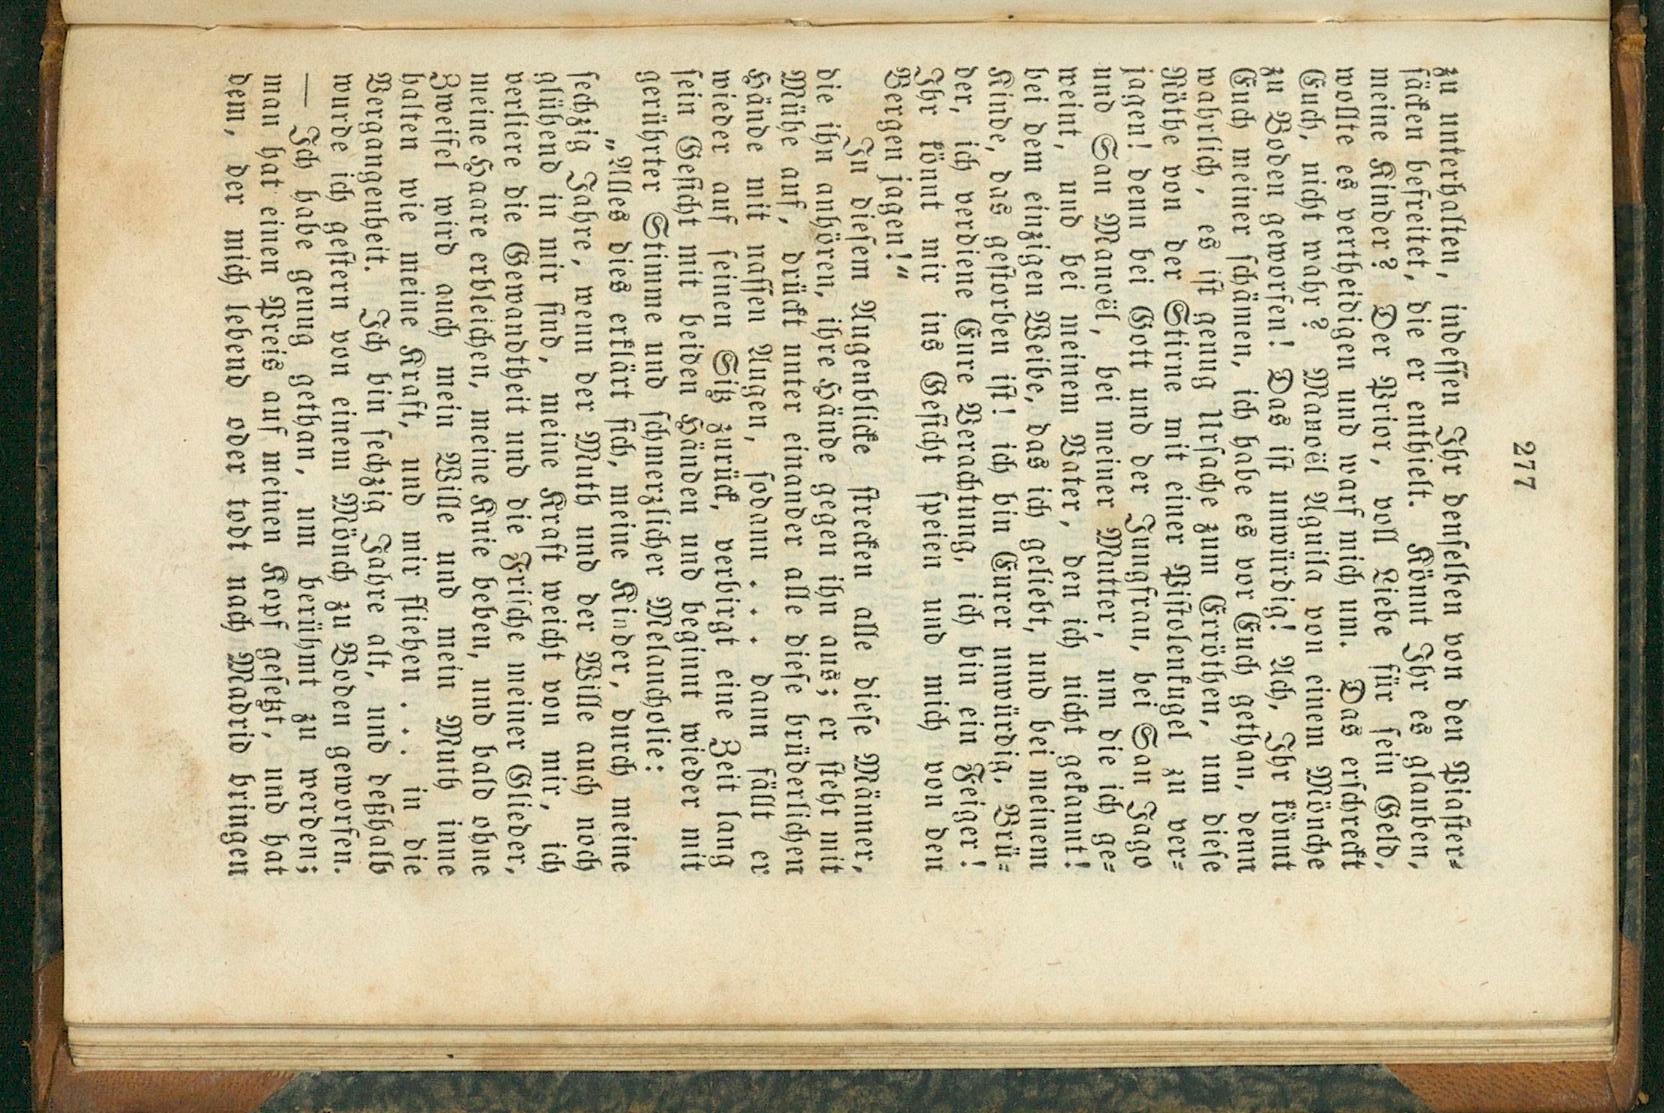 277
zu unterhalten, indessen Ihr denselben von den Piaster-
säcken befreitet, die er enthielt. Könnt Ihr es glauben,
meine Kinder? Der Prior, voll Liebe für sein Geld,
wollte es vertheidigen und warf mich um. Das erschreckt
Euch, nicht wahr? Manoël Aguila von einem Mönche
zu Boden geworfen! Das ist unwürdig! Ach, Ihr könnt
Euch meiner schämen, ich habe es vor Euch gethan, denn
wahrlich, es ist genug Ursache zum Erröthen, um diese
Röthe von der Stirne mit einer Pistolenkugel zu ver-
jagen! denn bei Gott und der Jungfrau, bei San Jago
und San Manoël, bei meiner Mutter, um die ich ge-
weint, und bei meinem Vater, den ich nicht gekannt!
bei dem einzigen Weibe, das ich geliebt, und bei meinem
Kinde, das gestorben ist! ich bin Eurer unwürdig, Brü-
der, ich verdiene Eure Verachtung, ich bin ein Feiger!
Ihr könnt mir ins Gesicht speien und mich von den
Bergen jagen!“
In diesem Augenblicke strecken alle diese Männer,
die ihn anhören, ihre Hände gegen ihn aus; er steht mit
Mühe auf, drückt unter einander alle diese brüderlichen
Hände mit nassen Augen, sodann . . . dann fällt er
wieder auf seinen Sitz zurück, verbirgt eine Zeit lang
sein Gesicht mit beiden Händen und beginnt wieder mit
gerührter Stimme und schmerzlicher Melancholie:
„Alles dies erklärt sich, meine Kinder, durch meine
sechzig Jahre, wenn der Muth und der Wille auch noch
glühend in mir sind, meine Kraft weicht von mir, ich
verliere die Gewandtheit und die Frische meiner Glieder,
meine Haare erbleichen, meine Knie beben, und bald ohne
Zweifel wird auch mein Wille und mein Muth inne
halten wie meine Kraft, und mir fliehen . . . in die
Vergangenheit. Ich bin sechzig Jahre alt, und deßhalb
wurde ich gestern von einem Mönch zu Boden geworfen.
— Ich habe genug gethan, um berühmt zu werden;
man hat einen Preis auf meinen Kopf gesetzt, und hat
dem, der mich lebend oder todt nach Madrid bringen